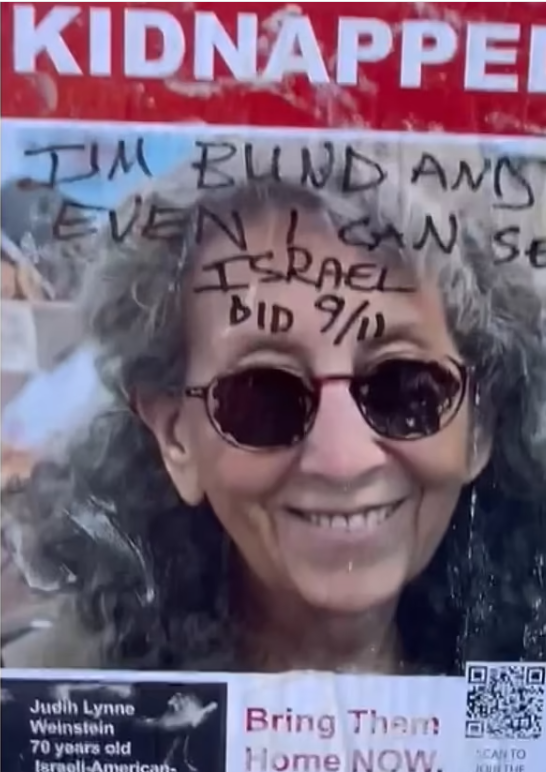 KIDNAPPE
I'M BLIND AND
EVEN I CAN SE
ISRAEL
DID 9/11
Judih Lynne
Weinstein
70 years old
Israeli-American-
Bring Them
Home NOW.
SCAN TO
JOIN THE